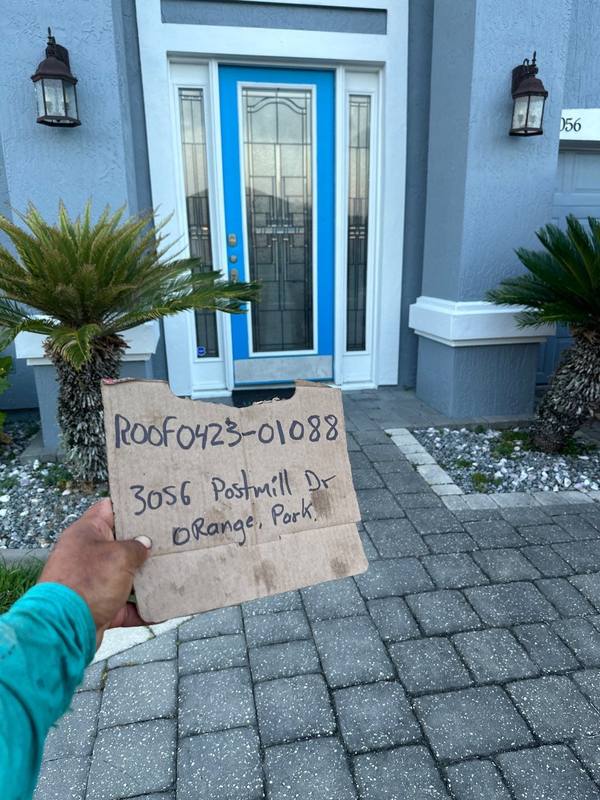 056
ROOF0423-01088
3056 Postmill Dr
ORange, Park.